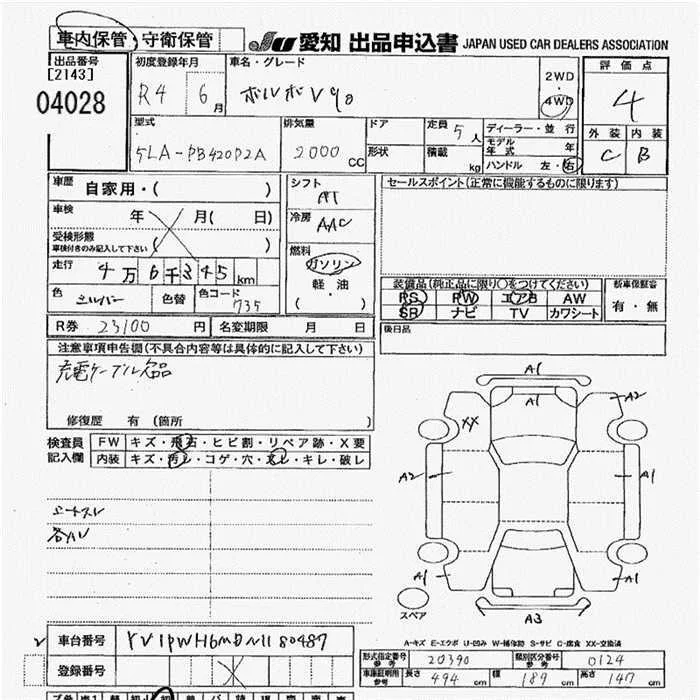 車内保管・守衛保管
JU 愛知 出品申込書 JAPAN USED CAR DEALERS ASSOCIATION
出品番号
[2143]
04028
初度登録年月
R4 6月
車名・グレード
ボルボV90
2WD
4WD
評価点
4
外装 内装
C B
型式
5LA-PB420P2A
排気量
2000 CC
ドア
形状
定員 5人
積載 kg
ディーラー・並行
モデル年式 年
ハンドル 左・右
車歴
自家用・( )
車検
年 月( 日)
受検形態
車検付きのみ記入して下さい ( )
走行
4万6千345km
色 シルバー 色替 色コード 735
シフト
AT
冷房
AAC
燃料
ガソリン
軽・油
( )
セールスポイント(正常に機能するものに限ります)
装備品(純正品に限り○をつけてください)
PS PW エアB AW
SR ナビ TV カワシート
新車保証書
有・無
後日品
R券 23100円 名変期限 月 日
注意事項申告欄(不具合内容等は具体的に記入して下さい)
充電ケーブル欠品
修復歴 有(箇所 )
検査員
記入欄
FW キズ・飛石・ヒビ割・リペア跡・X要
内装 キズ・汚レ・コゲ・穴・スレ・キレ・破レ
A1
A1
A2
XX
A2
A1
A1
A1
A3
スペア
A-キズ E-エクボ U-凹み W-補修跡 S-サビ C-腐食 XX-交換済
車台番号 YV1PWH6MDN1180487
登録番号
形式指定番号
参考
20390
類別区分番号
参考
0124
車庫証明用
参考
長さ 494cm 幅 189cm 高さ 147cm